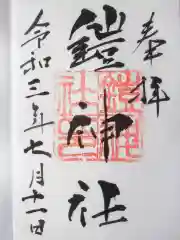 奉拝
鎧神社
令和三年七月十一日